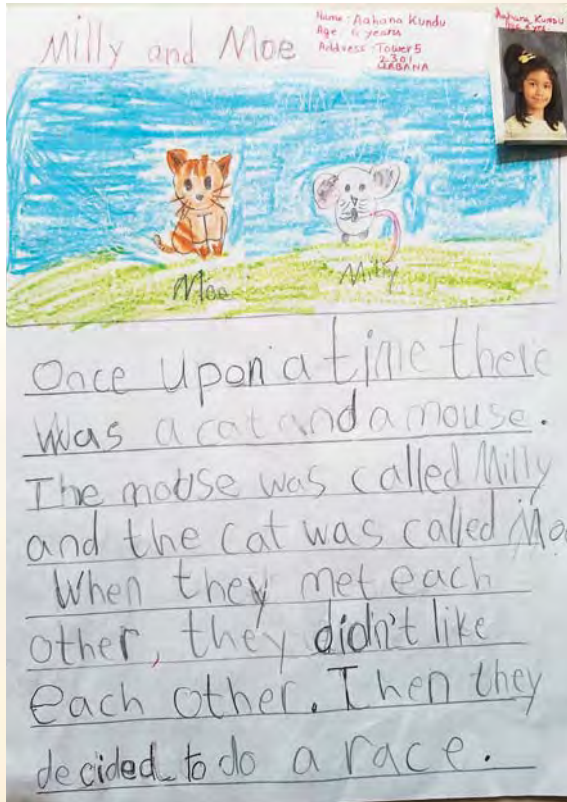 Milly and Moe
Name: Aahana Kundu
Age 6 years
Address: Tower 5
2301
URBANA
Aahana Kundu
Moe
Milly
Once upon a time there
was a cat and a mouse.
The mouse was called Milly
and the cat was called Moe
When they met each
other, they didn't like
each other. Then they
decided to do a race.